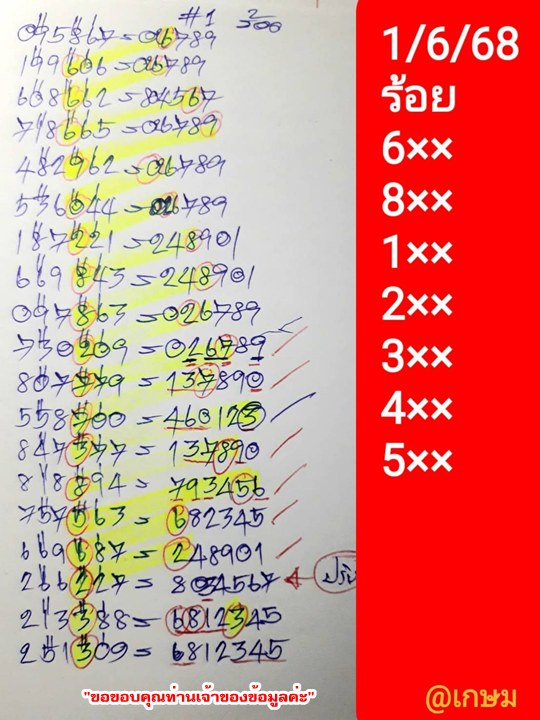 #1 2/500
095867=026789
199606=026789
608662=84567
718665=026789
482962=026789
536044=026789
187221=248901
669843=248901
097863=026789
730209=026789
807779=137890
558700=460123
847377=137890
818894=793456
757563=682345
669687=248901
266227=8034567
213388=6812345
251309=6812345
"ขอขอบคุณท่านเจ้าของข้อมูลค่ะ"
1/6/68
ร้อย
6××
8××
1××
2××
3××
4××
5××
@เกษม